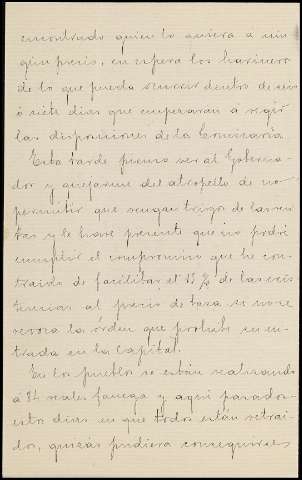 encontrado quien lo quiera a nin
gún precio, en espera los harineros
de lo que pueda suceder dentro de seis
o siete días que empezarán a regir
las disposiciones de la Comisaría.
Esta tarde pienso ver al Goberna
dor y quejarme del atropello de no
permitir que vengan trigos de las ven
tas y le haré presente que no podré
cumplir el compromiso que he con
traido de facilitar el 15 % de las exis
tencias al precio de tasa si no se
revoca la órden que prohibe su en
trada en la Capital.
En los pueblos se están realizando
a 84 reales fanega y aquí pasados
estos dias en que todos están retrai
dos, quizás pudiera conseguirse